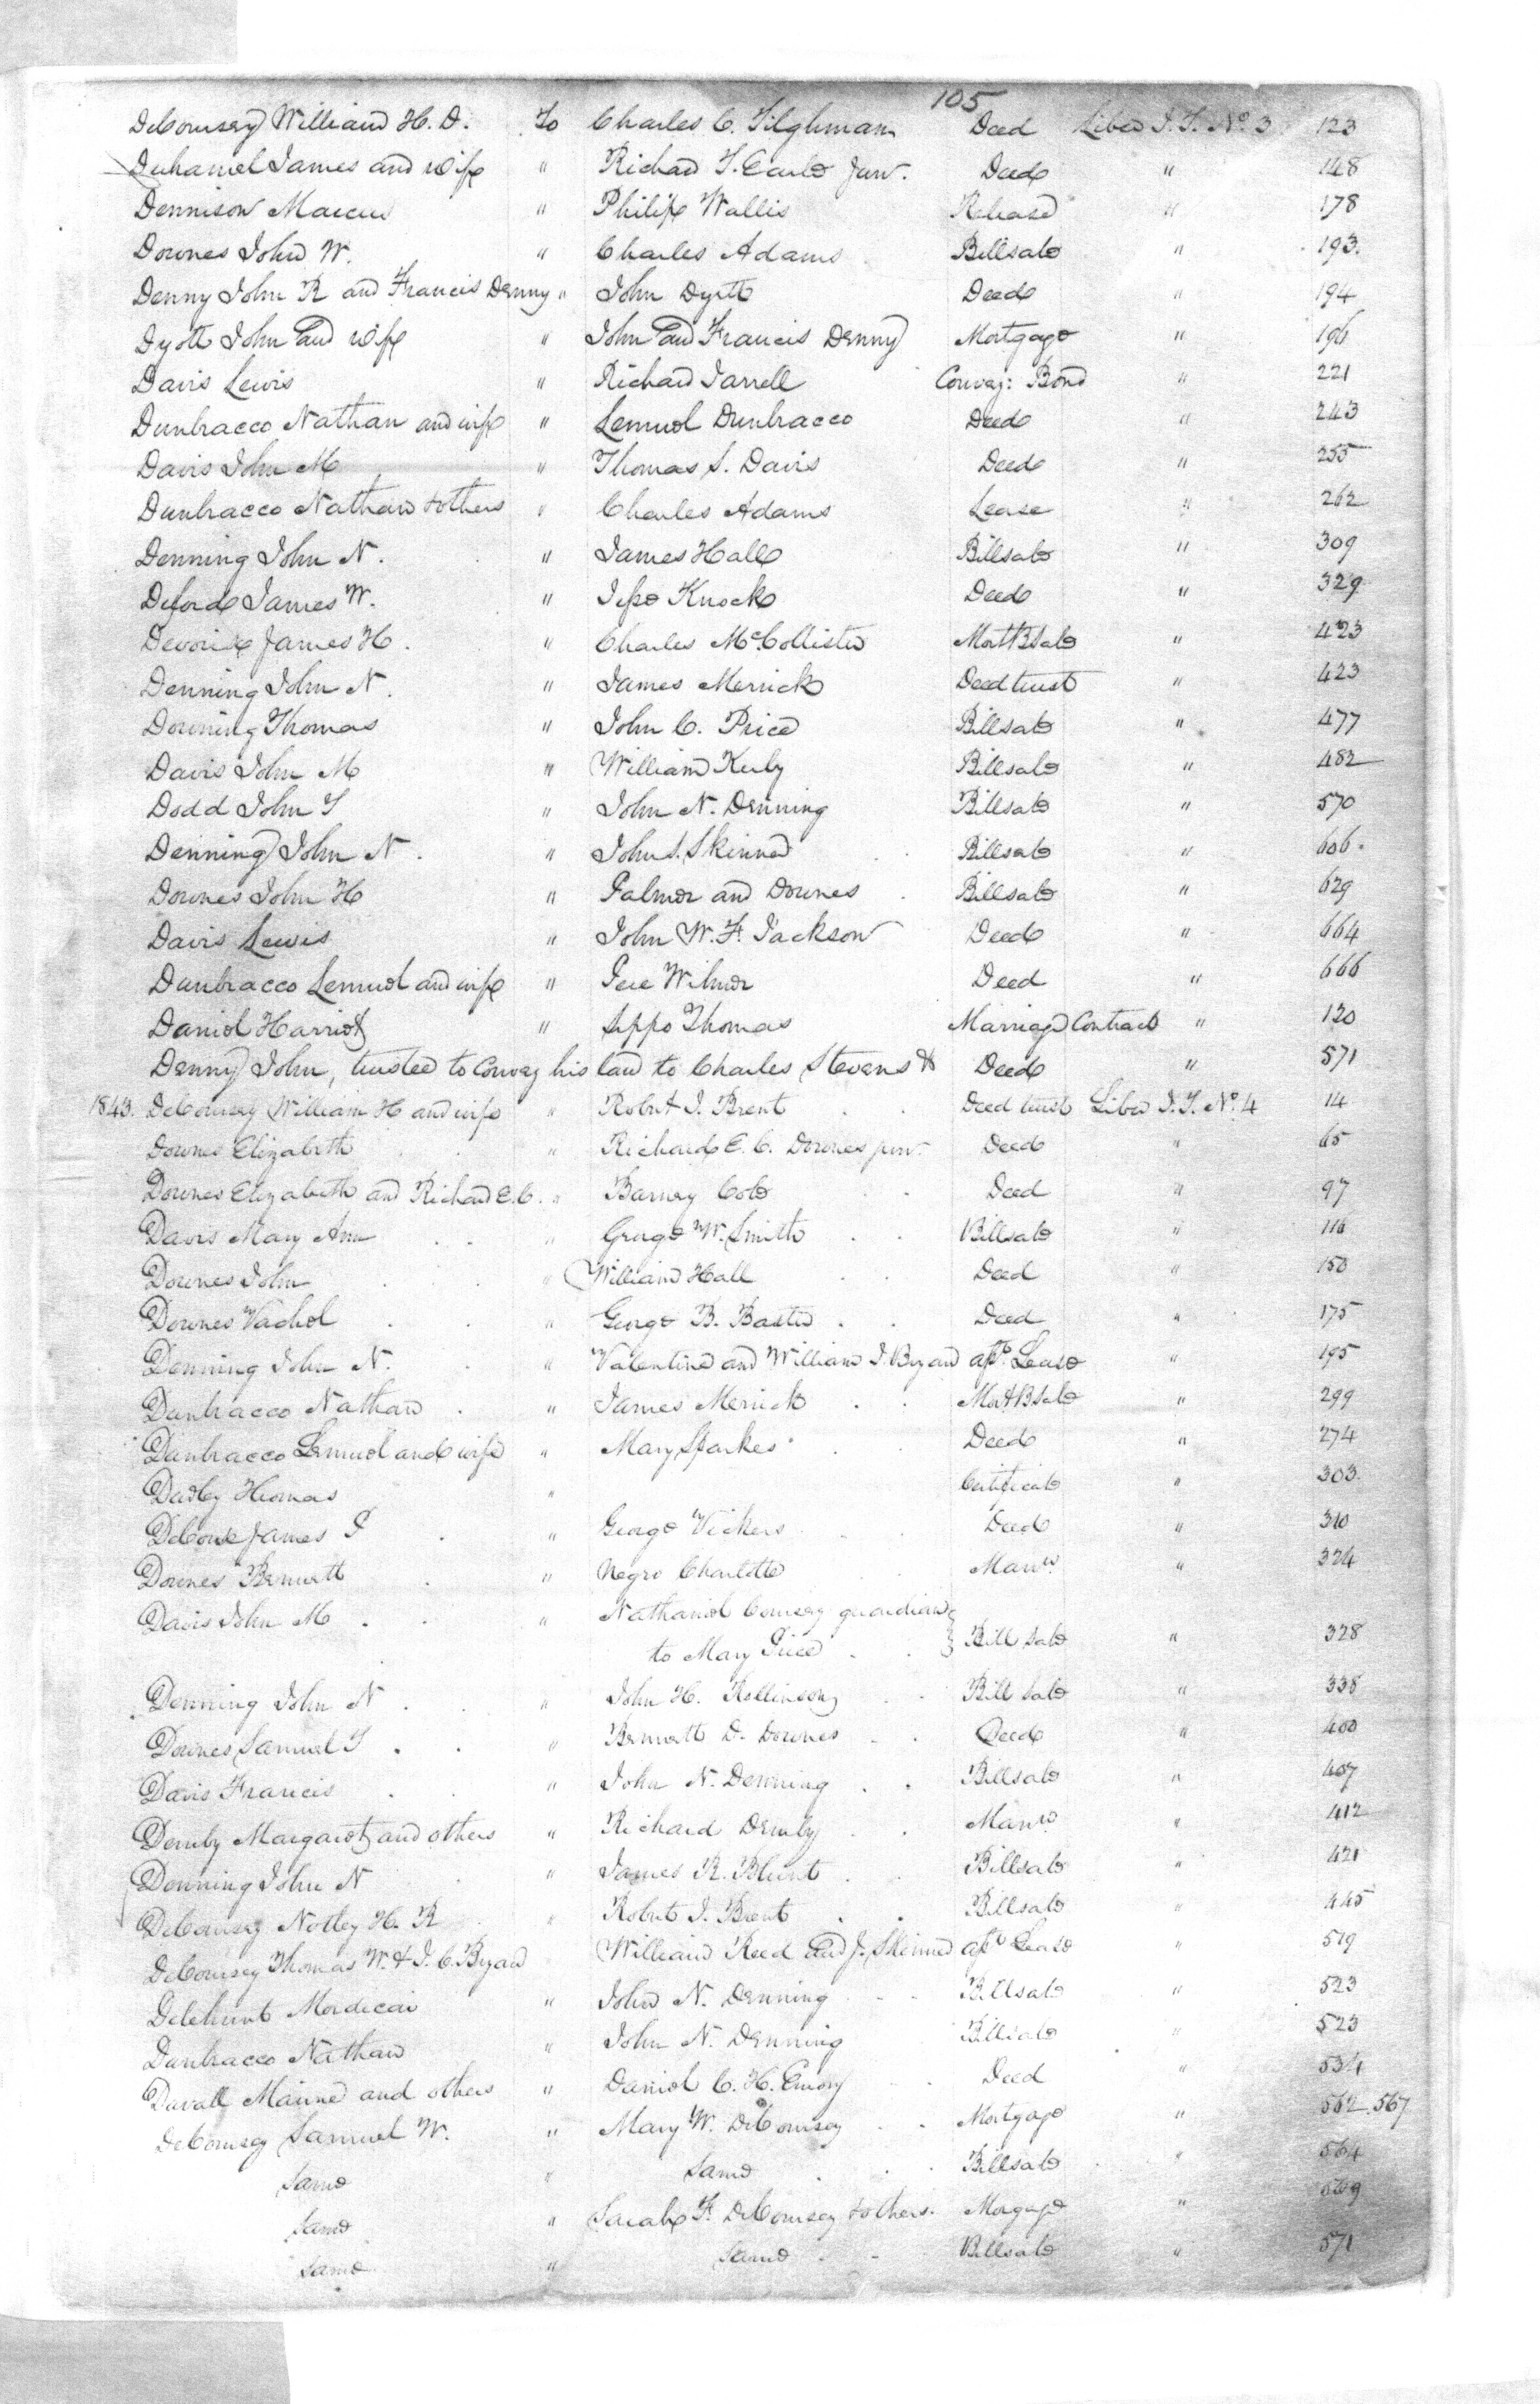 105
DeCoursey William H. D. To Charles C. Tilghman Deed Liber J. T. No. 3 123
Duhamel James and wife " Richard T. Earle Junr. Deed " 148
Dennison Marcus " Philip Wallis Release " 178
Downes John W. " Charles Adams Billsale " 193.
Denny John R and Francis Denny " John Dyott Deed " 194
Dyott John and wife " John and Francis Denny Mortgage " 196
Davis Lewis " Richard Jarrell Convey: Bond " 221
Dunbracco Nathan and wife " Lemuel Dunbracco Deed " 243
Davis John M " Thomas S. Davis Deed " 255
Dunbracco Nathan & others " Charles Adams Lease " 262
Denning John N. " James Hall Billsale " 309
Deford James W. " Jesse Knock Deed " 329
James H. " Charles McCollister Mort BSale " 423
Denning John N. " James Merrick Deed trust " 423
Downing Thomas " John C. Price Billsale " 477
Davis John M " William Kerby Billsale " 482
Dodd John T " John N. Denning Billsale " 570
Denning John N. " John S. Skinner Billsale " 606.
Downes John H " Palmer and Downes Billsale " 629
Davis Lewis " John W. F. Jackson Deed " 664
Dunbracco Lemuel and wife " Pere Wilmer Deed " 666
Daniel Harriot " Thomas Marriage Contract " 120
Denny John, trustee to Convey his land to Charles Stevens & Deed " 571
1843. DeCoursey William H and wife " Robert J. Brent Deed trust Liber J. T. No. 4 14
Downes Elizabeth " Richard E. C. Downes junr. Deed " 65
Downes Elizabeth and Richard E. C. " Barney Cole Deed " 97
Davis Mary Ann " George W. Smith Billsale " 116
Downes John " William Hall Deed " 150
Downes Vachel " George B. Baxter Deed " 175
Denning John N. " Valentine and William J. Bryan asst. Lease " 195
Dunbracco Nathan " James Merrick Mort BSale " 299
Dunbracco Lemuel and wife " Mary Sparkes Deed " 274
Dadley Thomas " Certificate " 303.
James " George Vickers Deed " 310
Downes Bennett " Negro Charlotte Manu. " 324
Davis John M. " Nathaniel Comegy guardian
to Mary Price } Bill Sale " 328
Denning John N " John H. Rollinson Bill Sale " 338
Downes Samuel T. " Bennett D. Downes Deed " 400
Davis Francis " John N. Denning Billsale " 407
Demby Margaret and others " Richard Demby Manu " 412
Denning John N " James R. Blunt Billsale " 421
DeCoursey Notley H. R " Robert J. Brent Billsale " 445
DeCoursey Thomas W. & J. C. Bryan William Reed and J. Skinner asst Lease " 519
Delehunt Mordecai " John N. Denning Billsale " 523
Dunbracco Nathan " John N. Denning Billsale " 523
Davall and others " Daniel C. H. Emory Deed " 534
DeCoursey Samuel W. " Mary W. DeCoursey Mortgage " 562.567
Same " Same Billsale " 564
Same " Sarah F. DeCoursey & others. Morgage " 569
Same " Same Billsale " 571